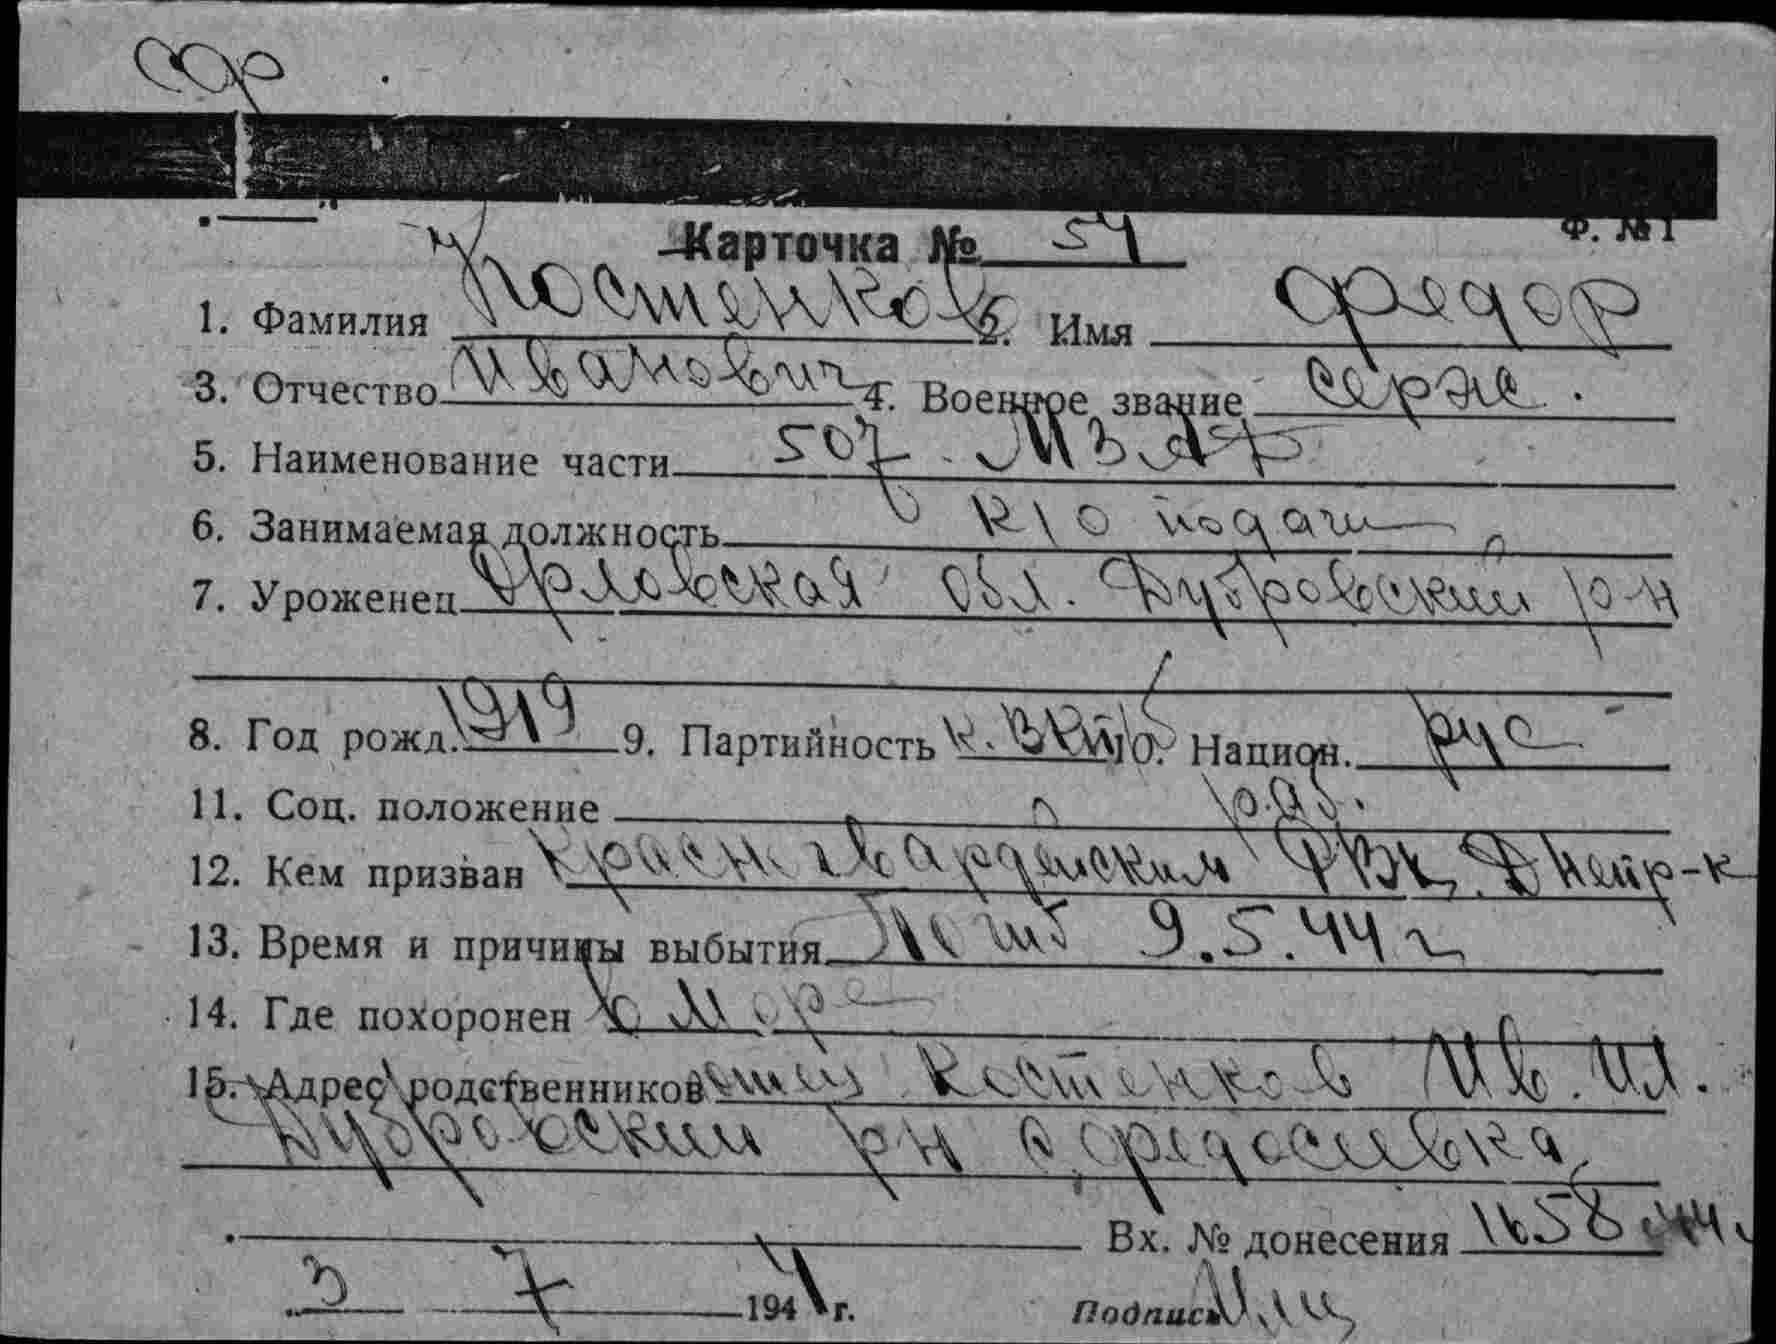 Ф. № 1
Карточка № 54
1. Фамилия Костенков 2. Имя Федор
3. Отчество Иванович 4. Военное звание серж.
5. Наименование части 507 МЗАП
6. Занимаемая должность к/о подачи
7. Уроженец Орловская обл. Дубровский р-н
8. Год рожд. 1919 9. Партийность к. ВКП/б 10. Национ. рус
11. Соц. положение раб.
12. Кем призван Красногвардейским РВК, Днепр-к
13. Время и причины выбытия Погиб 9.5.44 г
14. Где похоронен в море
15. Адрес родственников отец Костенков Ив. Ил.
Дубровский рн с. Федосиевка
Вх. № донесения 1658 44
3 7 1944 г. Подпись